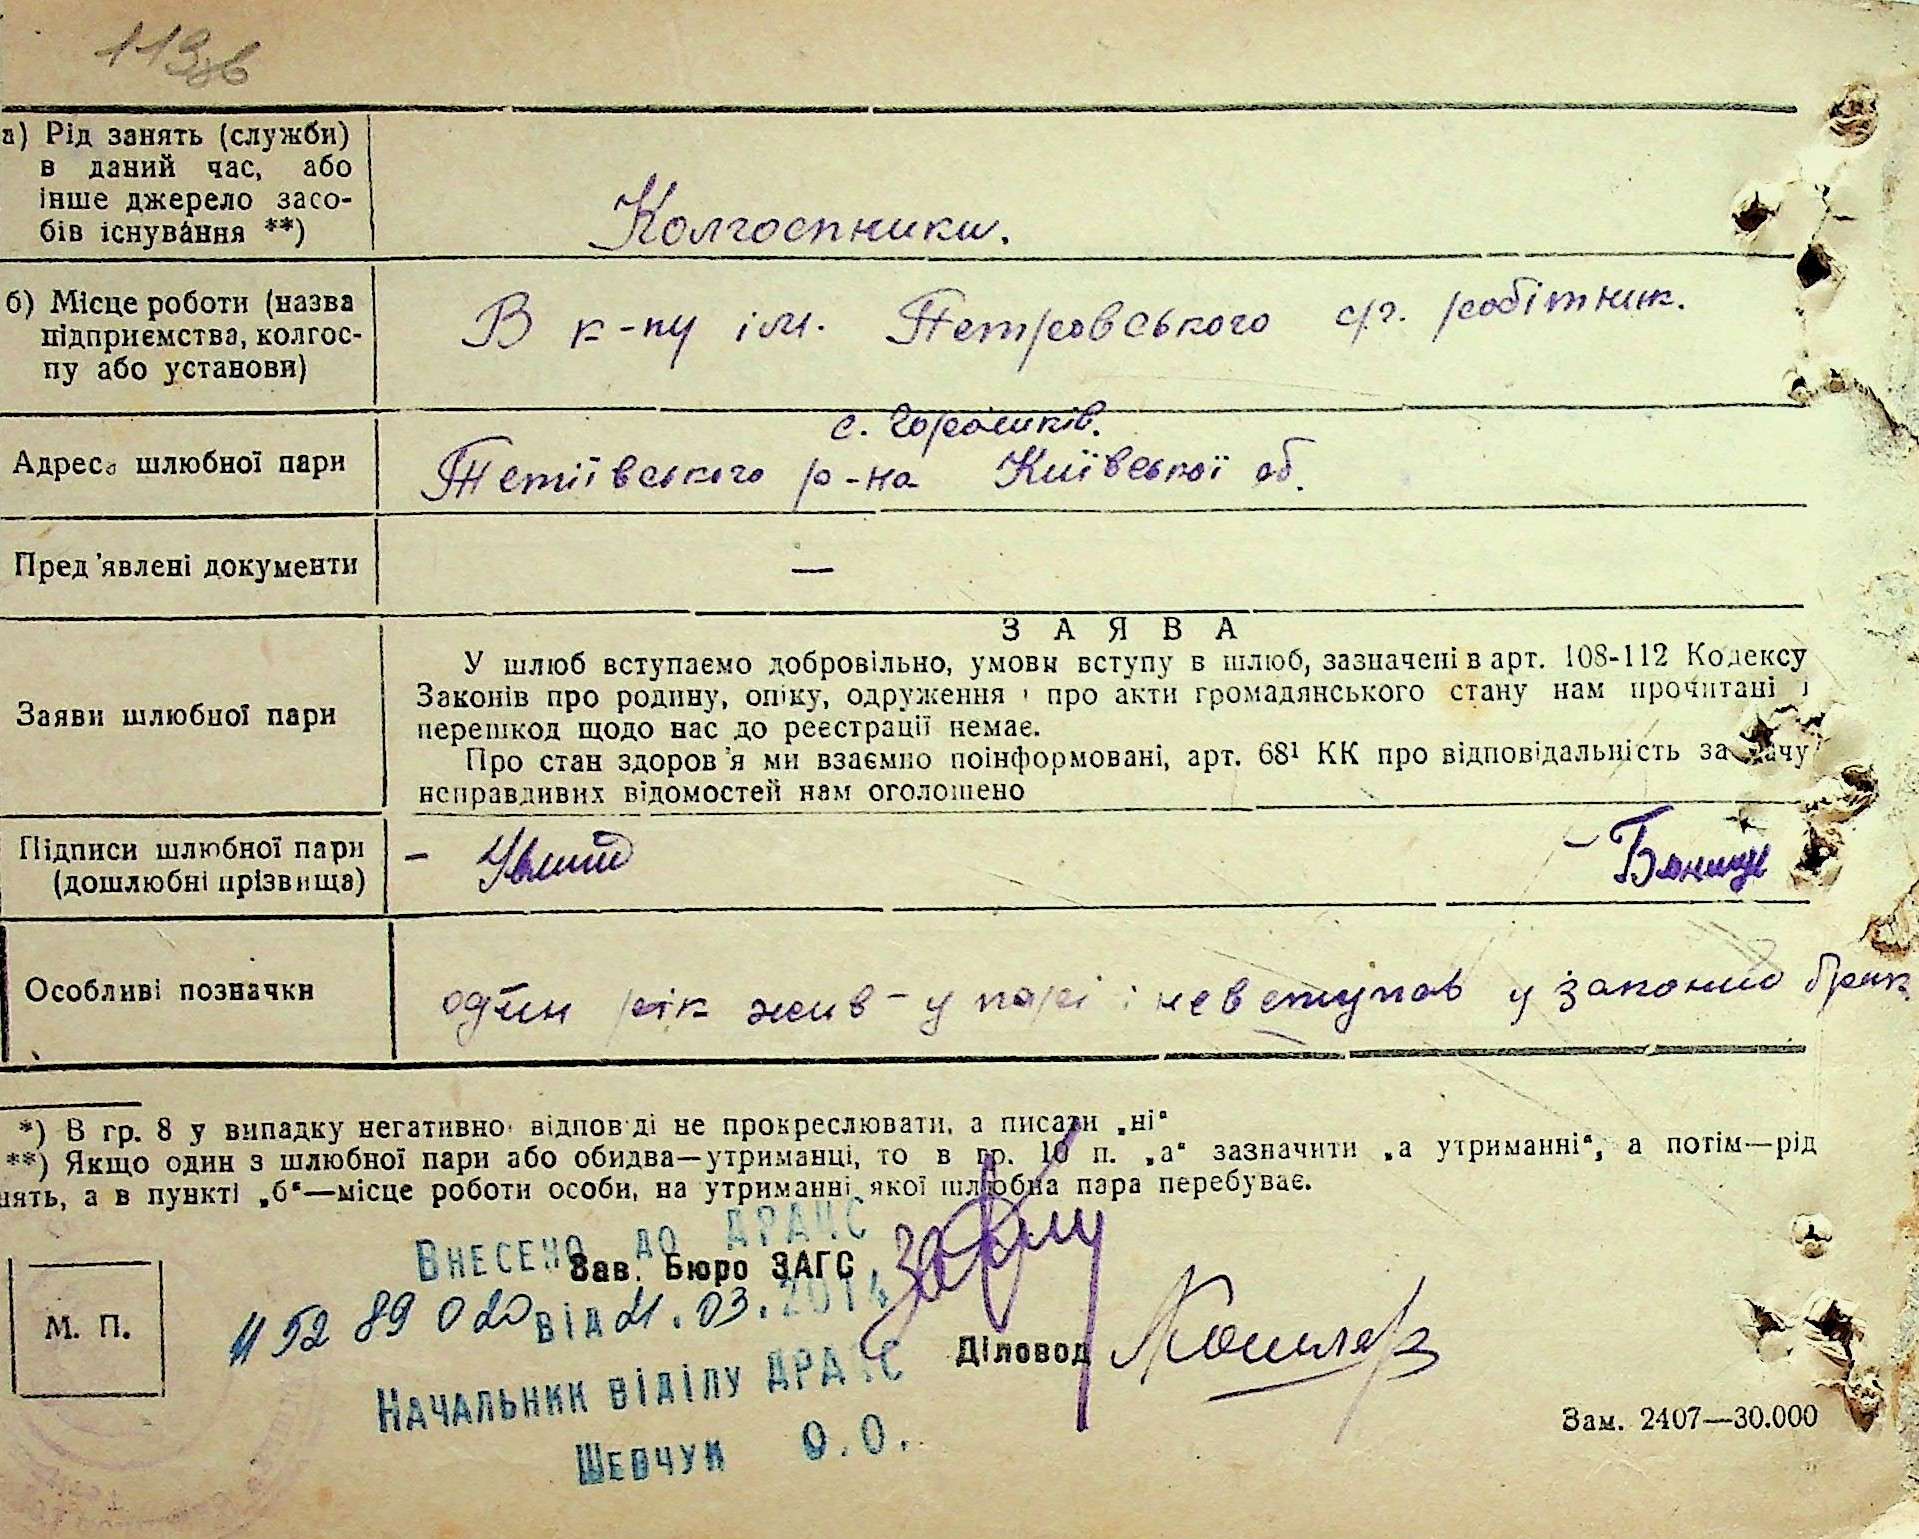 119зв
а) Рід занять (служби)
в даний час, або
інше джерело засо-
бів існування **)
Колгоспники.
б) Місце роботи (назва
підприємства, колгос-
пу або установи)
В к-пу ім. Петровського с/г. робітник.
Адреса шлюбної пари
с. Горошків.
Тетіївського р-на Київської об.
Пред'явлені документи
—
Заяви шлюбної пари
ЗАЯВА
У шлюб вступаємо добровільно, умови вступу в шлюб, зазначені в арт. 108-112 Кодексу
Законів про родину, опіку, одруження і про акти громадянського стану нам прочитані і
перешкод щодо нас до реєстрації немає.
Про стан здоров'я ми взаємно поінформовані, арт. 68¹ КК про відповідальність за дачу
неправдивих відомостей нам оголошено
Підписи шлюбної пари
(дошлюбні прізвища)
Особливі позначки
один рік жив у парі і не вступав у законий брак
*) В гр. 8 у випадку негативної відповіді не прокреслювати, а писати „ні"
**) Якщо один з шлюбної пари або обидва—утриманці, то в гр. 10 п. „а" зазначити „а утриманні", а потім—рід
нять, а в пункті „б"—місце роботи особи, на утриманні якої шлюбна пара перебуває.
Внесено до ДРАЦС
Зав. Бюро ЗАГС
від 21.03.2014
М. П.
Діловод
Начальник відділу ДРАЦС
Шевчук О.О.
Зам. 2407—30.000